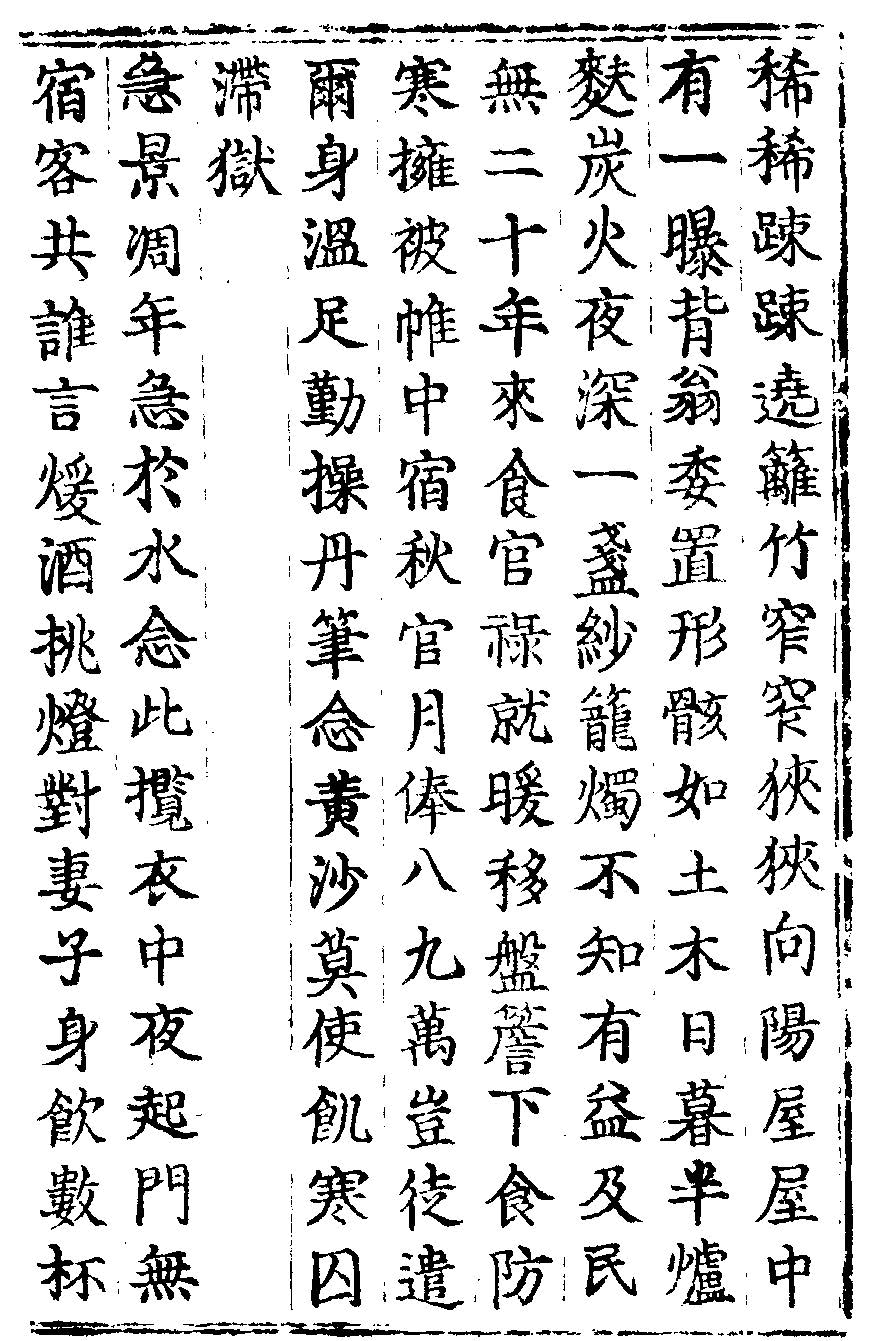 稀稀踈踈遶籬竹窄窄狹狹向陽屋屋中
有一曝背翁委置形骸如土木日暮半爐
麩炭火夜深一盞紗籠燭不知有益及民
無二十年來食官祿就暖移盤簷下食防
寒擁被帷中宿秋官月俸八九萬豈徒遣
爾身溫足勤操丹筆念黃沙莫使飢寒囚
滯獄
急景凋年急於水念此攬衣中夜起門無
宿客共誰言煖酒挑燈對妻子身飲數杯